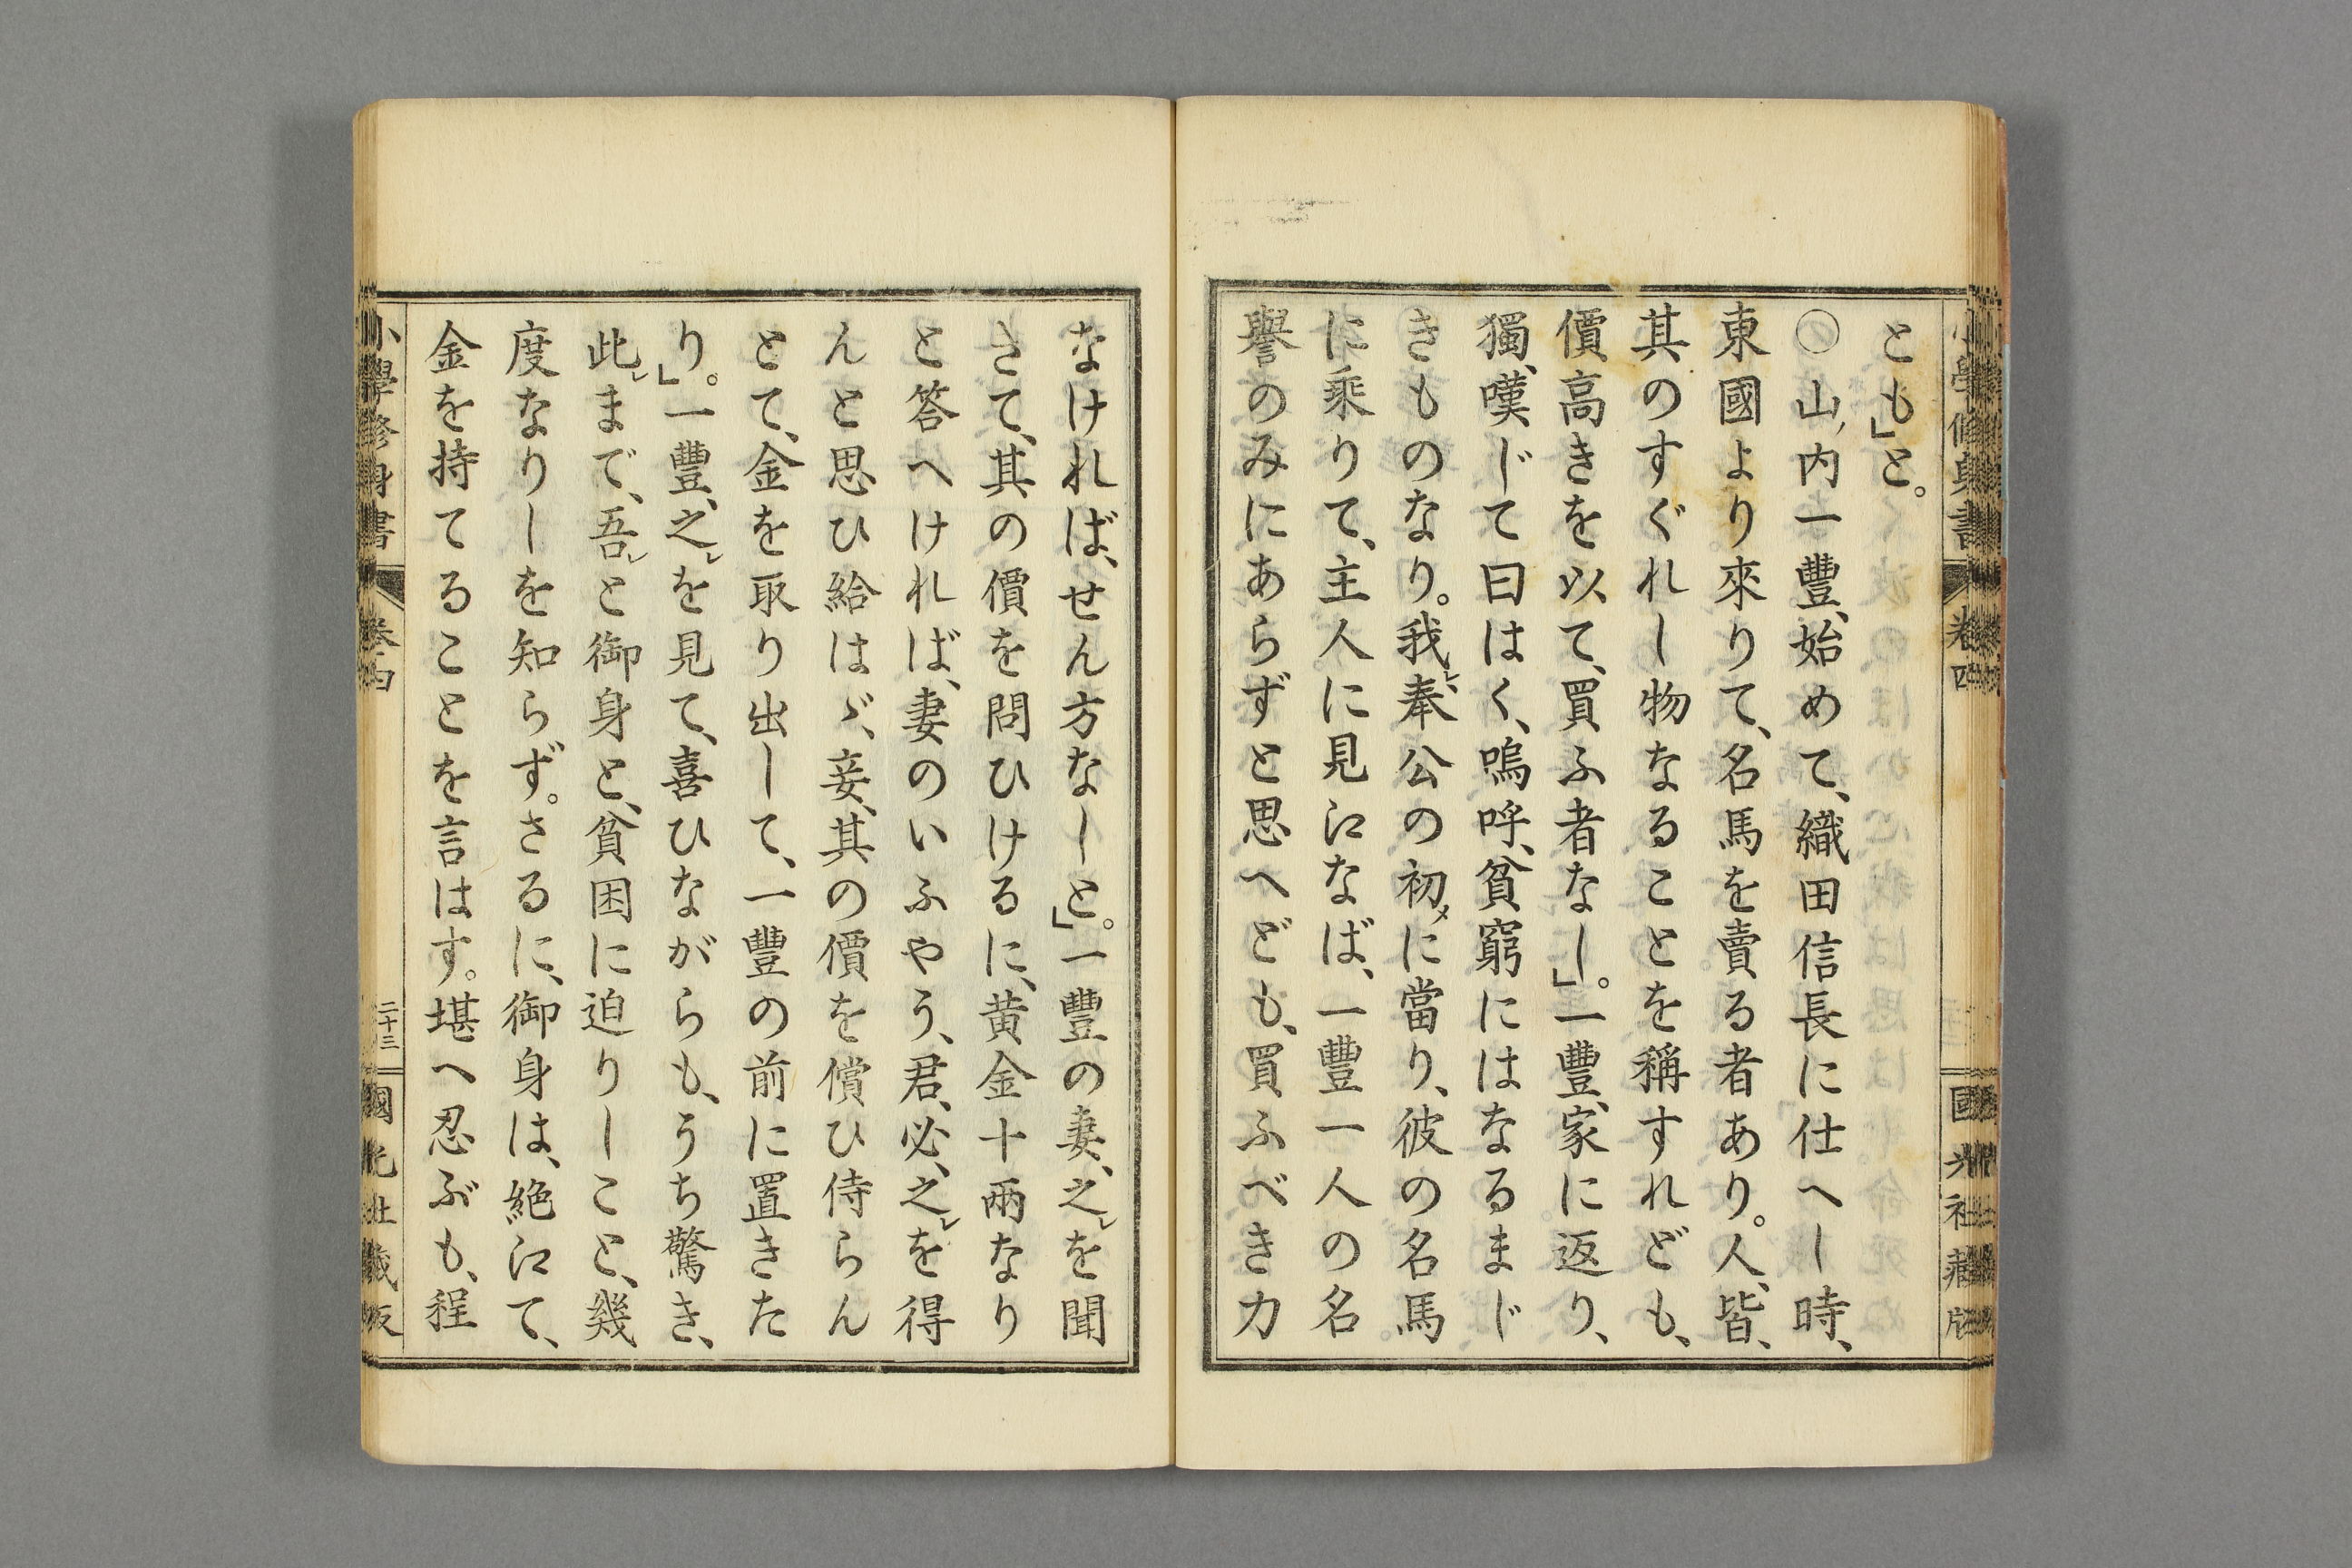 小學修身書 卷四 國光社藏版
とも」と。
○山ノ內一豐、始めて、織田信長に仕へし時、
東國より來りて、名馬を賣る者あり。人、皆、
其のすぐれし物なることを稱すれども、
價高きを以て、買ふ者なし」。一豐、家に返り、
獨、嘆じて曰はく、嗚呼、貧窮にはなるまじ
きものなり。我レ、奉公の初メに當り、彼の名馬
に乘りて、主人に見江なば、一豐一人の名
譽のみにあらずと思へども、買ふべき力
なければ、せん方なしと」。一豐の妻、之レを聞
きて、其の價を問ひけるに、黄金十兩なり
と答へければ、妻のいふやう、君、必、之レを得
んと思ひ給はゞ、妾、其の價を償ひ侍らん
とて、金を取り出して、一豐の前に置きた
り」。一豐、之レを見て、喜ひながらも、うち驚き、
此レまで、吾レと御身と、貧困に迫りしこと、幾
度なりしを知らず。さるに、御身は、絶江て、
金を持てることを言はす。堪へ忍ぶも、程
小學修身書 卷四 二十三 國光社藏版